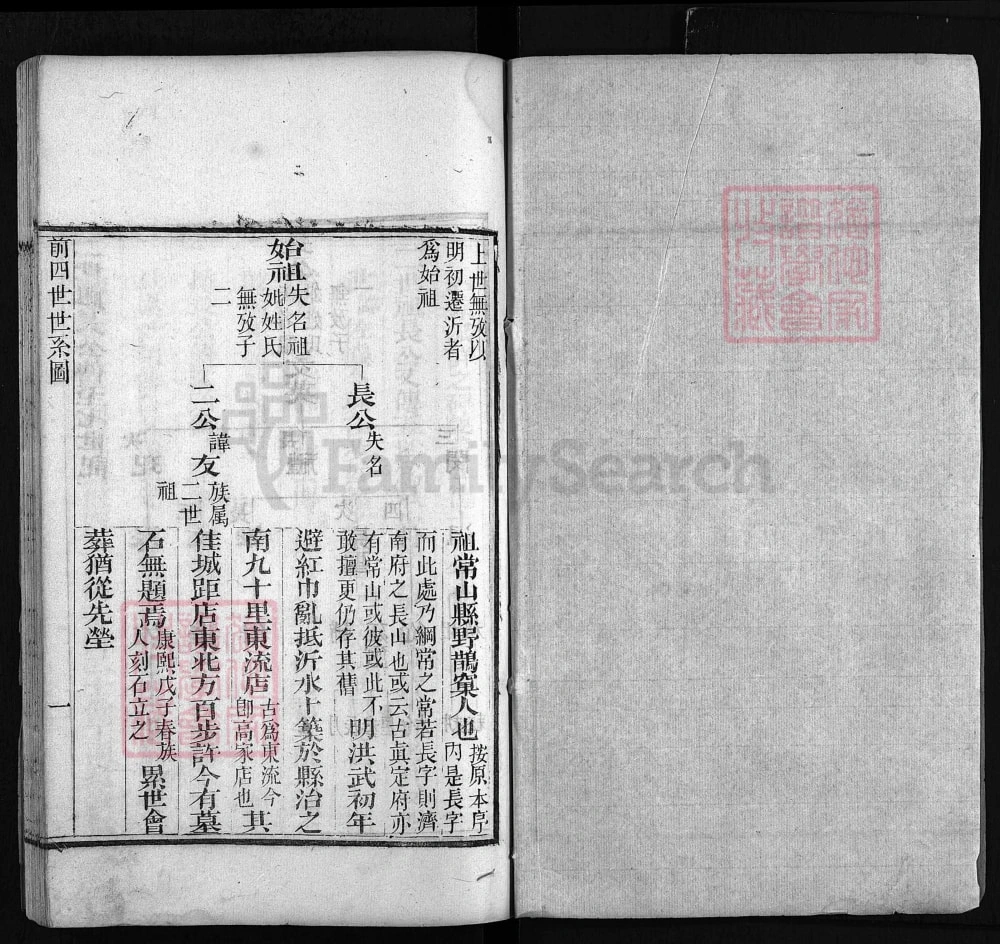 上世無攷以
明初遷沂者
為始祖
始祖失名祖
妣姓氏
無攷子
二
長公失名
二公諱友族属
二世
祖
祖常山縣野鵲窠人也按原本序
內是長字
而此處乃綱常之常若長字則濟
南府之長山也或云古眞定府亦
有常山或彼或此不
敢擅更仍存其舊
明洪武初年
避紅巾亂抵沂水卜築於縣治之
南九十里東流店古為東流今
卽高家店也
其
佳城距店東北方百步許今有墓
石無題焉康熙戊子春族
人刻石立之
累世會
葬猶從先塋
前四世世系圖
一
FamilySearch